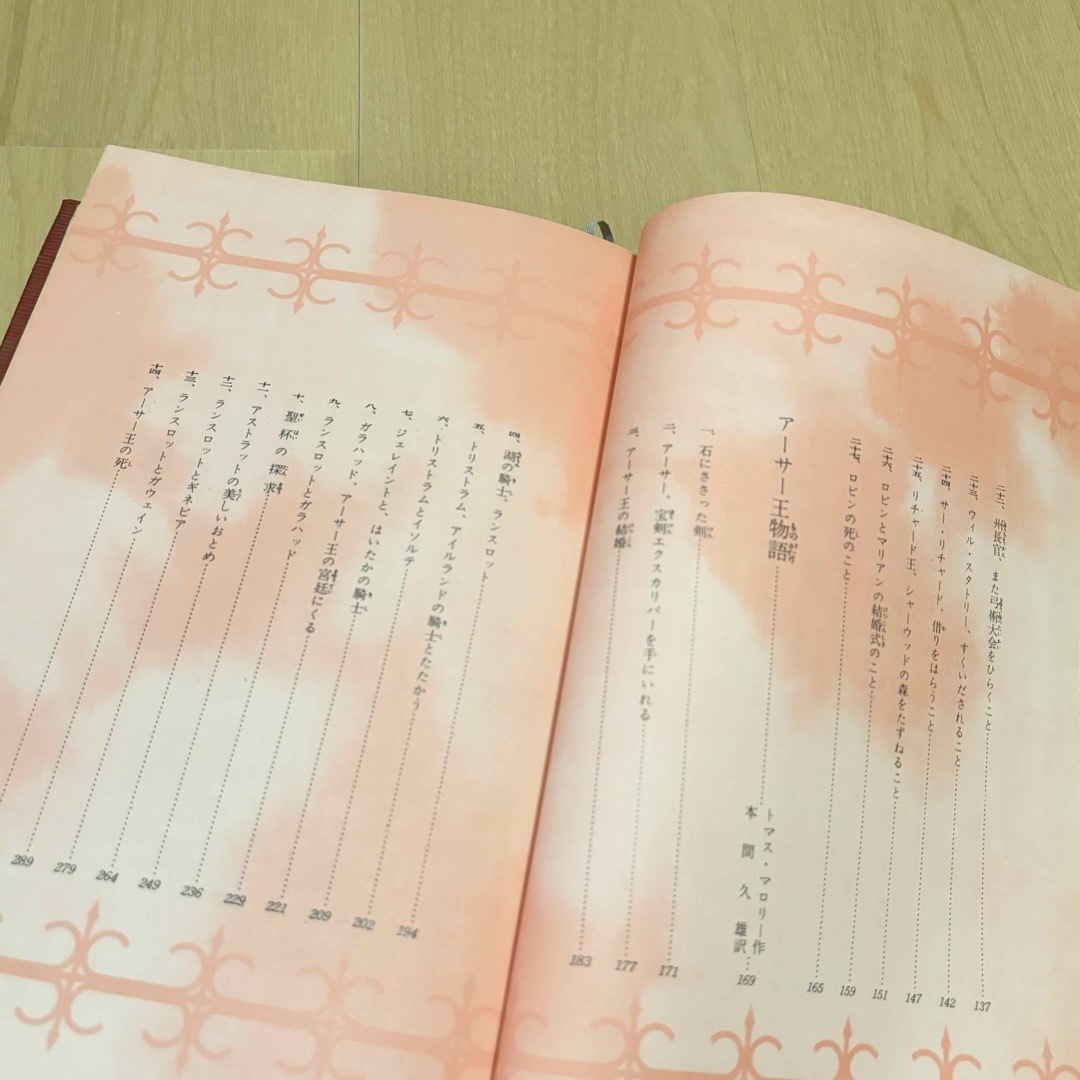 二十二、州長官、また弓術大会をひらくこと……137
二十三、ウィル・スタトリー、すくいだされること……142
二十四、サー・リチャード、借りをはらうこと……147
二十五、リチャード王、シャーウッドの森をたずねること……151
二十六、ロビンとマリアンの結婚式のこと……159
二十七、ロビンの死のこと……165
アーサー王物語……トマス・マロリー作
本間久雄訳……169
一、石にささった剣……171
二、アーサー、宝剣エクスカリバーを手にいれる……177
三、アーサー王の結婚……183
四、湖の騎士、ランスロット……194
五、トリストラム、アイルランドの騎士とたたかう……202
六、トリストラムとイソルテ……209
七、ジェレイントと、はいたかの騎士……221
八、ガラハッド、アーサー王の宮廷にくる……229
九、ランスロットとガラハッド……236
十、聖杯の探求……249
十一、アストラットの美しいおとめ……264
十二、ランスロットとギネビア……279
十三、ランスロットとガウェイン……289
十四、アーサー王の死